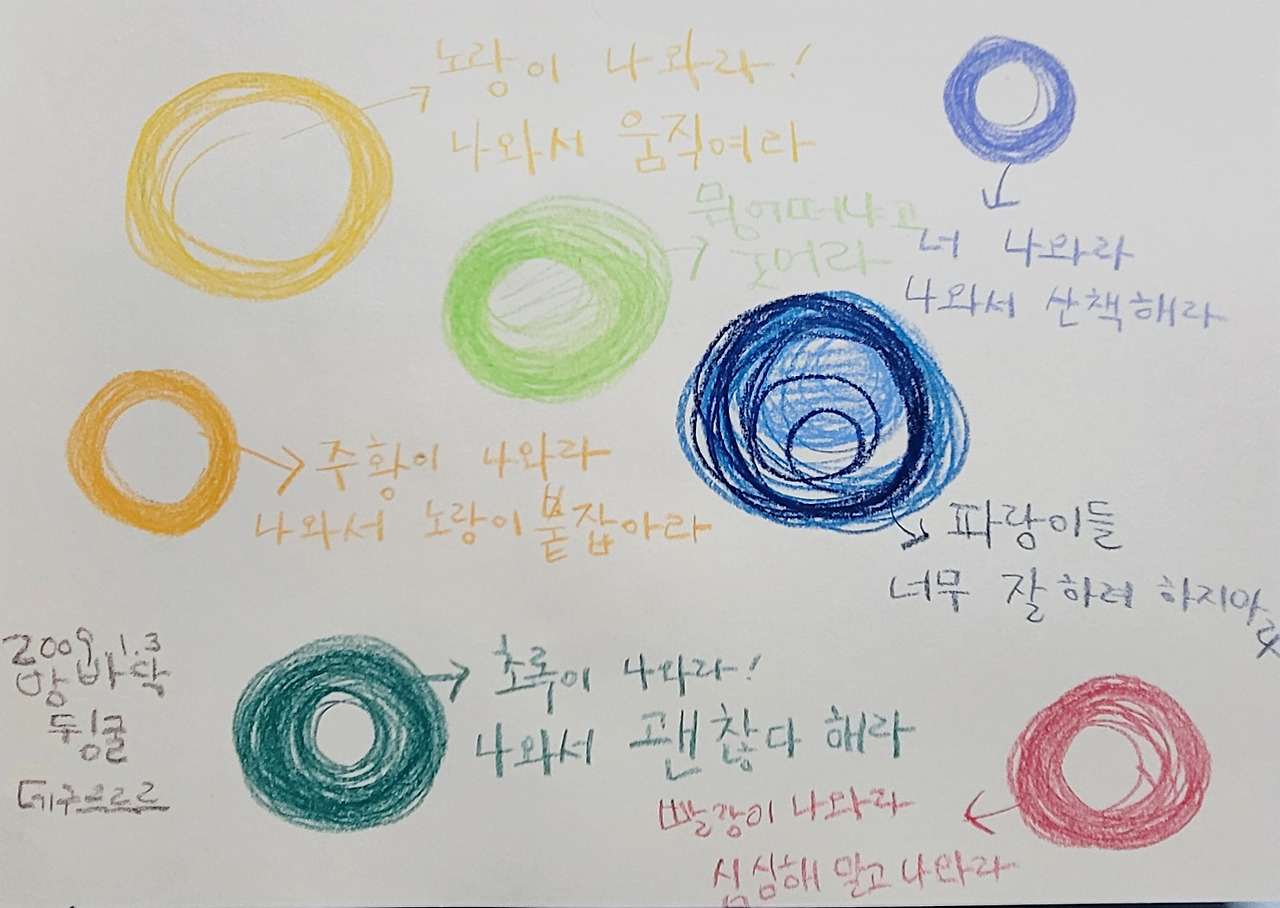 노랑이 나와라!
나와서 움직여라
뭠어떠냐고
웃어라
너 나와라
나와서 산책해라
주황이 나와라
나와서 노랑이 붙잡아라
파랑이들
너무 잘하려 하지마라
2009.1.3
방바닥
뒹굴
데구르르르
초록이 나와라!
나와서 괜찮다 해라
빨강이 나와라
심심해 말고 나와라